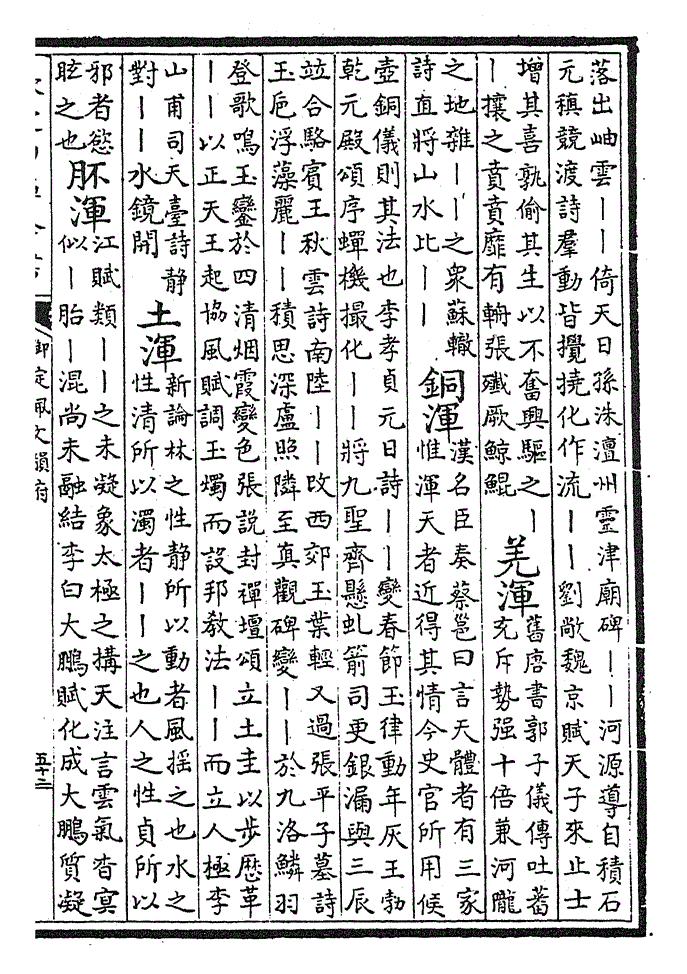 落出岫雲｜｜倚天日孫洙澶州靈津廟碑｜｜河源導自積石
元稹競渡詩羣動皆攪撓化作流｜｜劉敞魏京賦天子來止士
增其喜孰偷其生以不奮興驅之｜
｜攘之賁賁靡有輈張殲厥鯨鯤
羌渾
舊唐書郭子儀傳吐蕃
充斥勢强十倍兼河隴
之地雜｜｜之衆蘇轍
詩直將山水比｜｜
銅渾
漢名臣奏蔡邕曰言天體者有三家
惟渾天者近得其情今史官所用候
壺銅儀則其法也李孝貞元日詩｜｜變春節玉律動年灰王勃
乾元殿頌序蟬機撮化｜｜將九聖齊懸虬箭司更銀漏與三辰
竝合駱賓王秋雲詩南陸｜｜改西郊玉葉輕又過張平子墓詩
玉巵浮藻麗｜｜積思深盧照隣至真觀碑變｜｜於九洛鱗羽
登歌鳴玉鑾於四清烟霞變色張説封禪壇頌立土圭以步厯革
｜｜以正天王起協風賦調玉燭而設邦教法｜｜而立人極李
山甫司天臺詩静
對｜｜水鏡開
土渾
新論林之性静所以動者風摇之也水之
性清所以濁者｜｜之也人之性貞所以
邪者慾
眩之也
胚渾
江賦類｜｜之未凝象太極之搆天注言雲氣杳冥
似｜胎｜混尚未融結李白大鵬賦化成大鵬質凝
御定佩文韻府
五十二